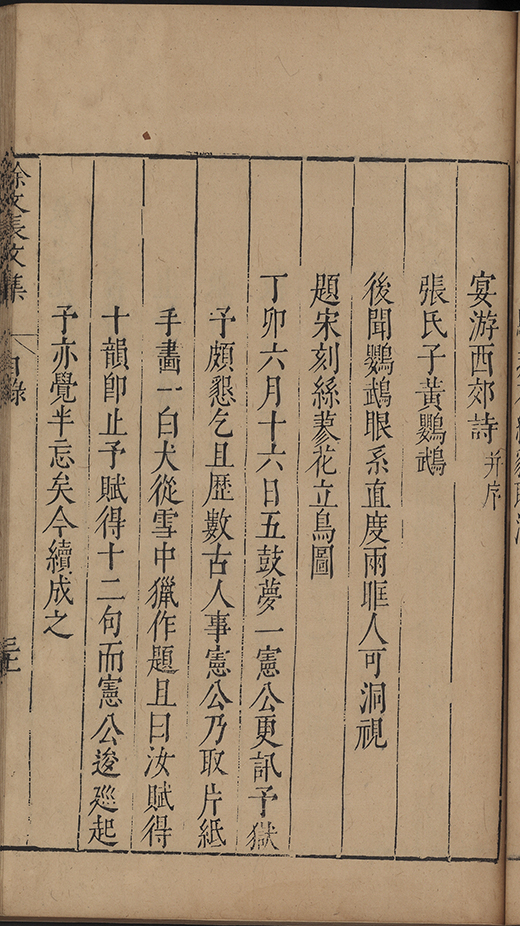 宴游西郊詩并序
張氏子黃鸚鵡
後聞鸚鵡眼系直度兩眶人可洞視
題宋刻絲蓼花立鳥圖
丁卯六月十六日五鼓夢一憲公更訊予獄
予頗懇乞且歷數古人事憲公乃取片紙
手畫一白犬從雪中獵作題且曰汝賦得
十韻卽止予賦得十二句而憲公逡廵起
予亦覺半忘矣今續成之
徐文長文集
目錄